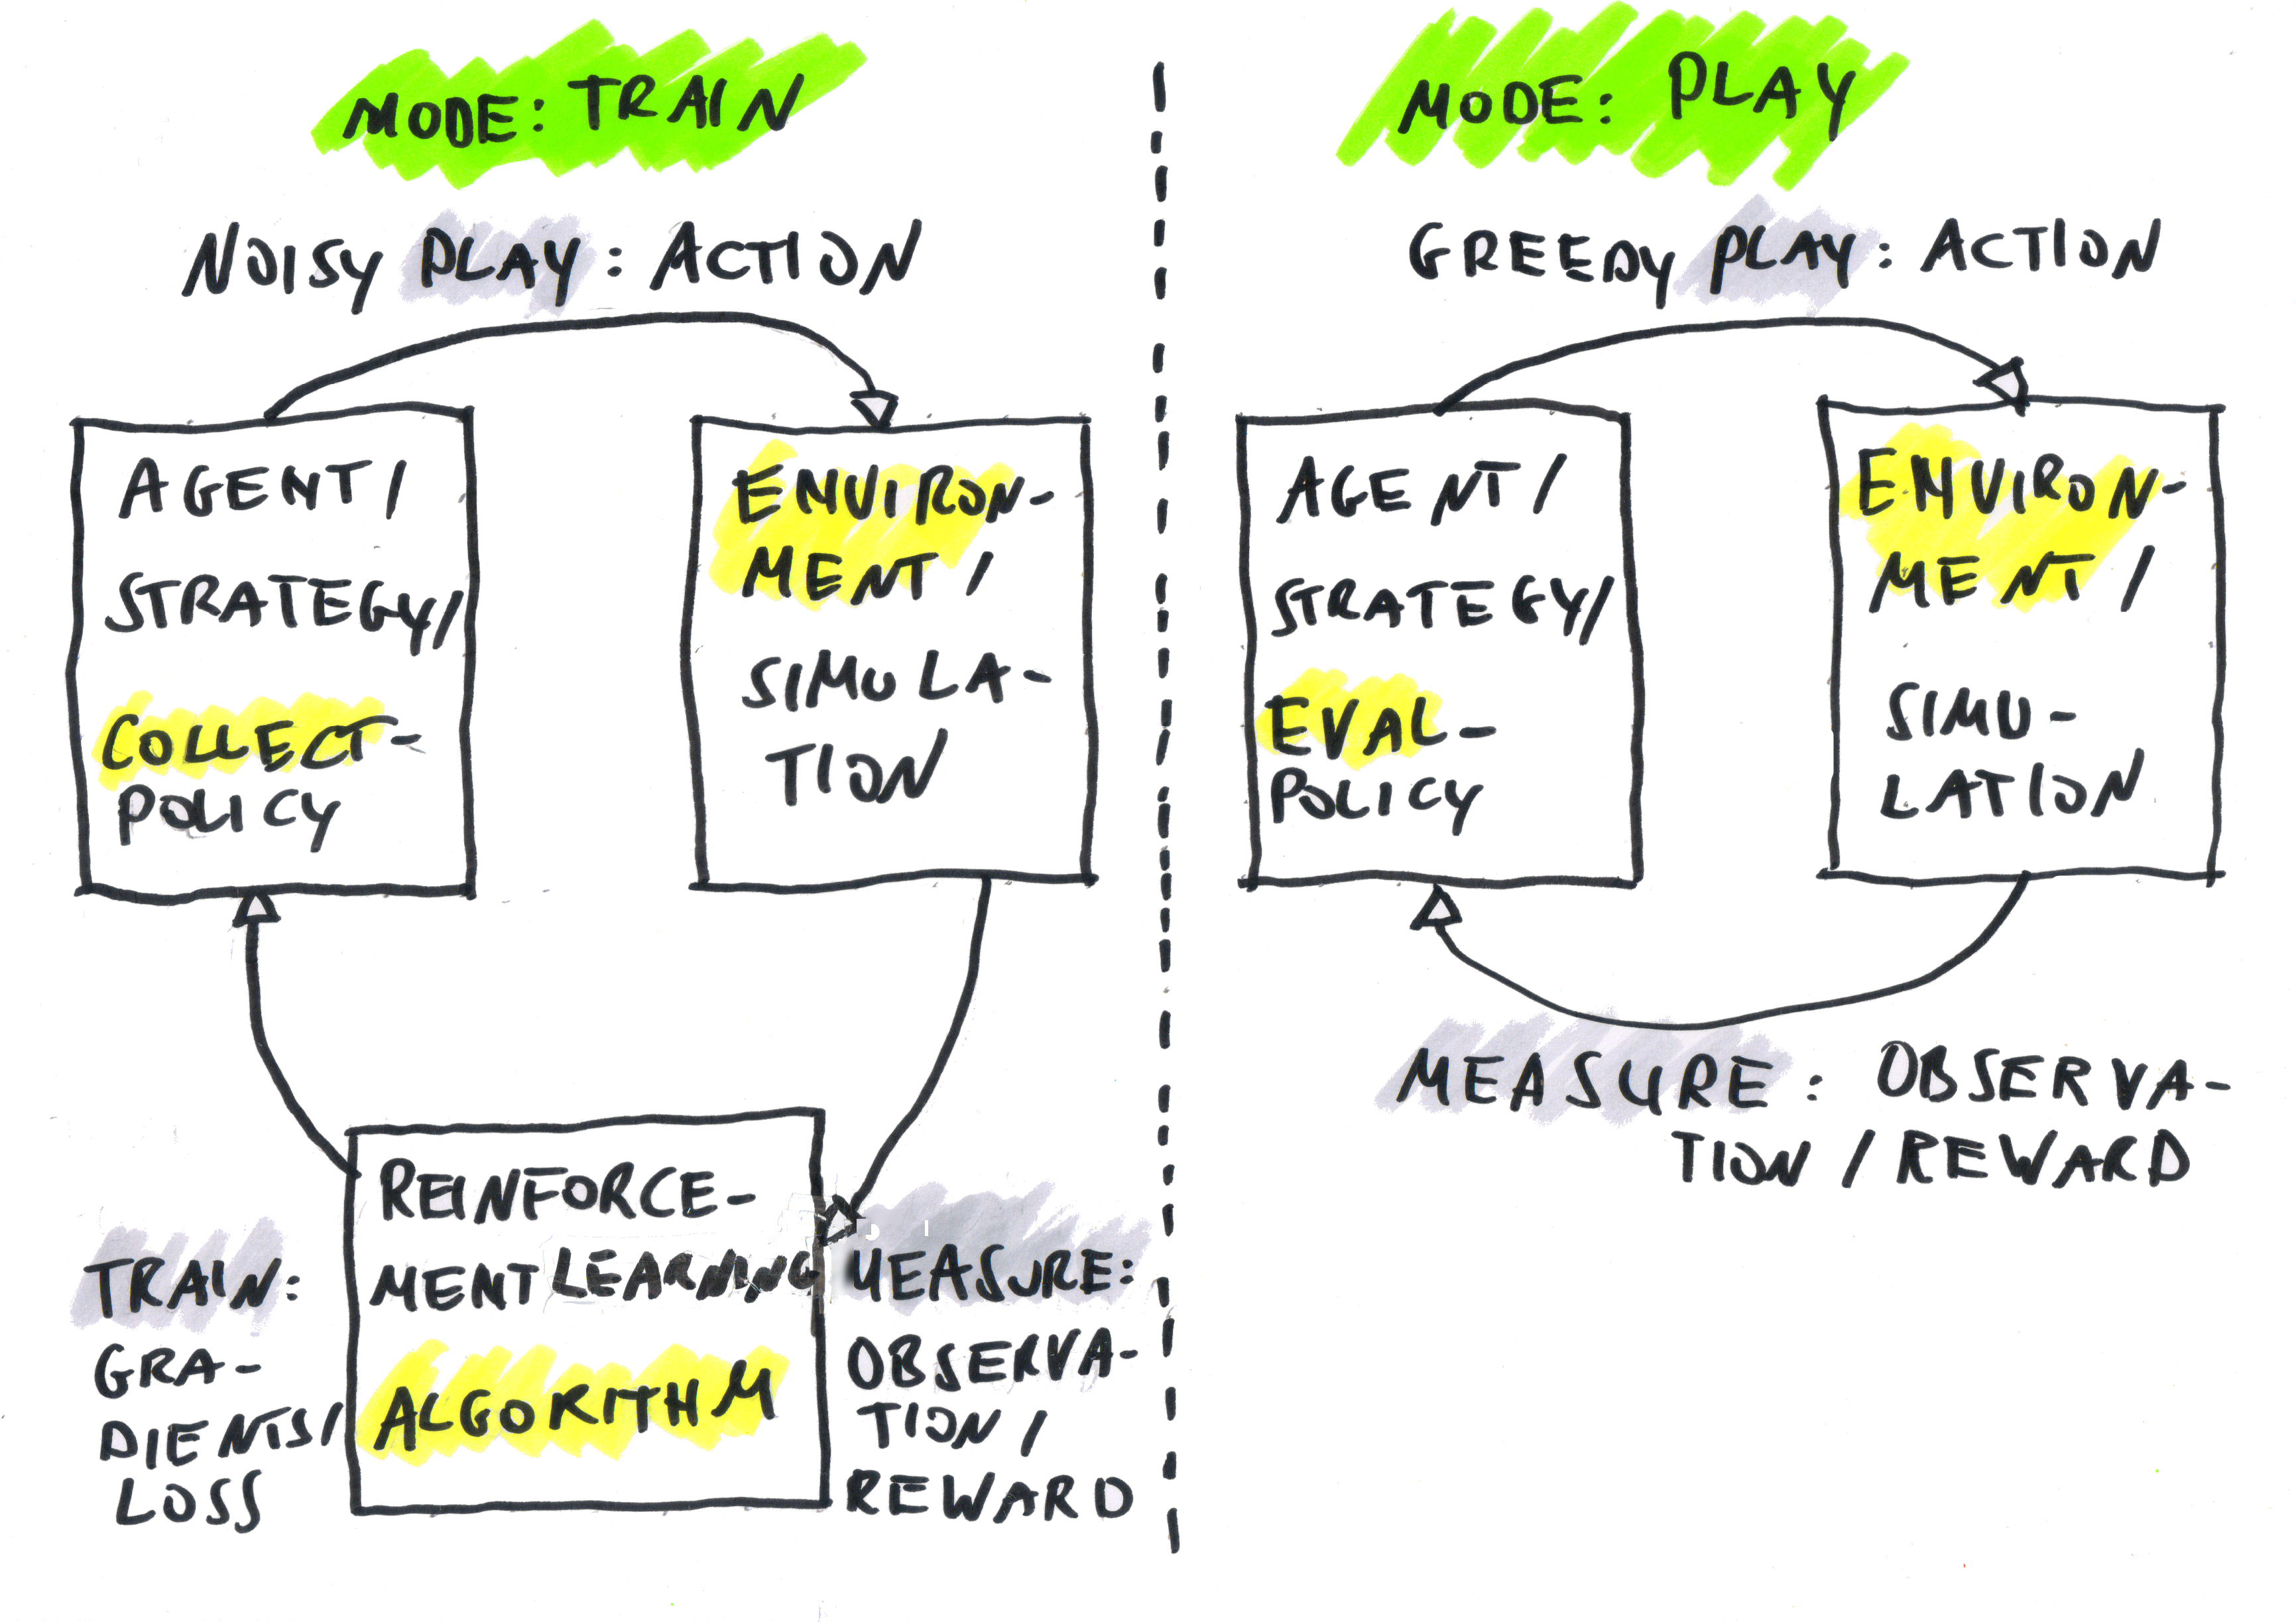 MODE: TRAIN
NOISY PLAY: ACTION
AGENT/
STRATEGY/
COLLECT-
POLICY
ENVIRON-
MENT/
SIMULA-
TION
REINFORCE-
MENT LEARNING
ALGORITHM
TRAIN:
GRA-
DIENTS/
LOSS
MEASURE:
OBSERVA-
TION/
REWARD
MODE: PLAY
GREEDY PLAY: ACTION
AGENT/
STRATEGY/
EVAL-
POLICY
ENVIRON-
MENT/
SIMU-
LATION
MEASURE: OBSERVA-
TION/REWARD